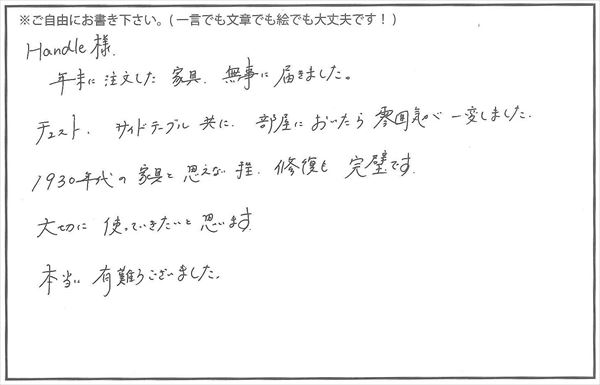 ※ご自由にお書き下さい。(一言でも文章でも絵でも大丈夫です！)
Handle様.
年末に注文した家具、無事に届きました。
チェスト、サイドテーブル共に、部屋においたら雰囲気が一変しました.
1930年代の家具と思えない程、修復も完璧です.
大切に使っていきたいと思います.
本当に有難うございました.